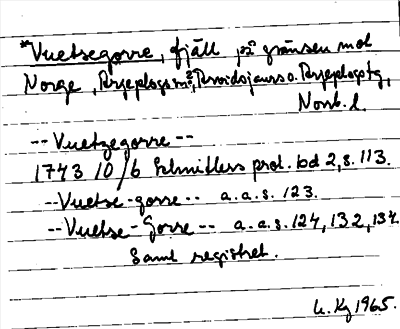 *Vuetsegorre, fjäll på gränsen mot
Norge, Arjeplogs m:a, Arvidsjaurs o. Arjeplogs tg,
Norrb. l.
-- Vuetzegorre --
1743 10/6 Schnitlers prot. bd 2, s. 113.
-- Vuetse-gorre -- a.a.s. 123.
-- Vuetse-Gorre -- a.a.s. 124, 132, 134
samt registret.
Kg 1965.